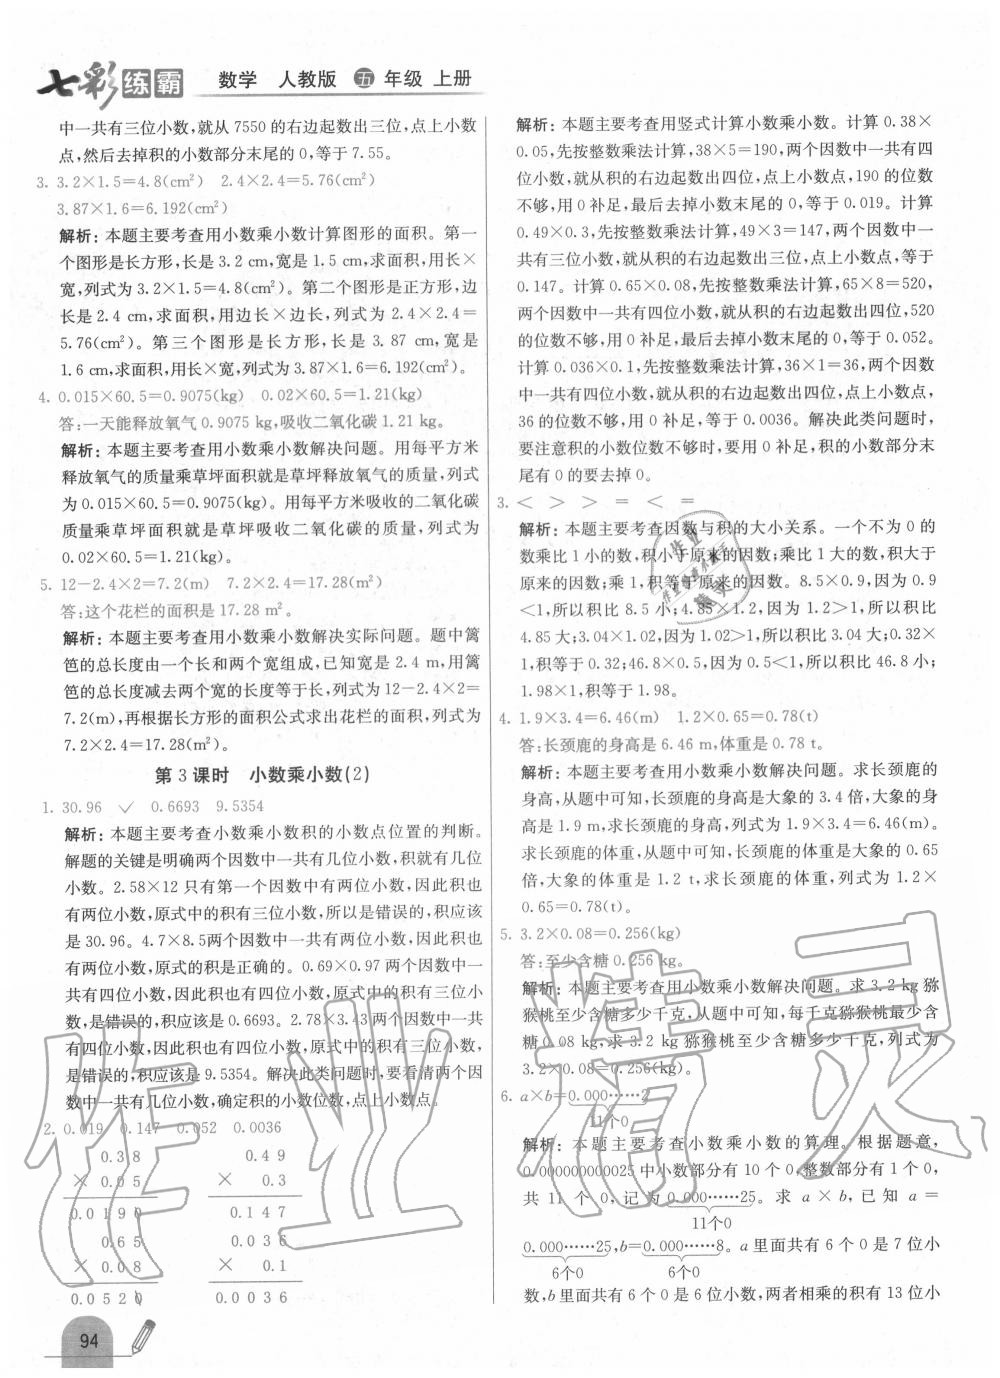 七彩练霸 数学 人教版 五年级 上册
中一共有三位小数,就从 7550 的右边起数出三位,点上小数
点,然后去掉积的小数部分末尾的 0,等于 7.55。
3. 3.2×1.5=4.8(cm²) 2.4×2.4=5.76(cm²)
3.87×1.6=6.192(cm²)
解析: 本题主要考查用小数乘小数计算图形的面积。第一
个图形是长方形,长是 3.2 cm,宽是 1.5 cm,求面积,用长×
宽,列式为 3.2×1.5=4.8(cm²)。第二个图形是正方形,边
长是 2.4 cm,求面积,用边长×边长,列式为 2.4×2.4=
5.76(cm²)。第三个图形是长方形,长是 3.87 cm,宽是
1.6 cm,求面积,用长×宽,列式为 3.87×1.6=6.192(cm²)。
4. 0.015×60.5=0.9075(kg) 0.02×60.5=1.21(kg)
答:一天能释放氧气 0.9075 kg,吸收二氧化碳 1.21 kg。
解析: 本题主要考查用小数乘小数解决问题。用每平方米
释放氧气的质量乘草坪面积就是草坪释放氧气的质量,列式
为 0.015×60.5=0.9075(kg)。用每平方米吸收的二氧化碳
质量乘草坪面积就是草坪吸收二氧化碳的质量,列式为
0.02×60.5=1.21(kg)。
5. 12-2.4×2=7.2(m) 7.2×2.4=17.28(m²)
答:这个花栏的面积是 17.28 m²。
解析: 本题主要考查用小数乘小数解决实际问题。题中篱
笆的总长度由一个长和两个宽组成,已知宽是 2.4 m,用篱
笆的总长度减去两个宽的长度等于长,列式为 12-2.4×2=
7.2(m),再根据长方形的面积公式求出花栏的面积,列式为
7.2×2.4=17.28(m²)。
第 3 课时 小数乘小数(2)
1. 30.96 ✓ 0.6693 9.5354
解析: 本题主要考查小数乘小数积的小数点位置的判断。
解题的关键是明确两个因数中一共有几位小数,积就有几位
小数。2.58×12 只有第一个因数中有两位小数,因此积也
有两位小数,原式中的积有三位小数,所以是错误的,积应该
是 30.96。4.7×8.5两个因数中一共有两位小数,因此积也
有两位小数,原式的积是正确的。0.69×0.97 两个因数中一
共有四位小数,因此积也有四位小数,原式中的积有三位小
数,是错误的,积应该是 0.6693。2.78×3.43两个因数中一共
有四位小数,因此积也有四位小数,原式中的积有三位小数,
是错误的,积应该是 9.5354。解决此类问题时,要看清两个因
数中一共有几位小数,确定积的小数位数,点上小数点。
2. 0.019 0.147 0.052 0.0036
0.38 0.49
× 0.05 × 0.3
0.0190 0.147
0.65 0.036
× 0.08 × 0.1
0.0520 0.0036
94
解析: 本题主要考查用竖式计算小数乘小数。计算 0.38×
0.05,先按整数乘法计算,38×5=190,两个因数中一共有四
位小数,就从积的右边起数出四位,点上小数点,190 的位数
不够,用 0 补足,最后去掉小数末尾的 0,等于 0.019。计算
0.49×0.3,先按整数乘法计算,49×3=147,两个因数中一
共有三位小数,就从积的右边起数出三位,点上小数点,等于
0.147。计算 0.65×0.08,先按整数乘法计算,65×8=520,
两个因数中一共有四位小数,就从积的右边起数出四位,520
的位数不够,用 0 补足,最后去掉小数末尾的 0,等于 0.052。
计算 0.036×0.1,先按整数乘法计算,36×1=36,两个因数
中一共有四位小数,就从积的右边起数出四位,点上小数点,
36 的位数不够,用 0 补足,等于 0.0036。解决此类问题时,
要注意积的小数位数不够时,要用 0 补足,积的小数部分末
尾有 0 的要去掉 0。
3. < > > = < =
解析: 本题主要考查因数与积的大小关系。一个不为 0 的
数乘比 1 小的数,积小于原来的因数;乘比 1 大的数,积大于
原来的因数;乘 1,积等于原来的因数。8.5×0.9,因为 0.9
<1,所以积比 8.5 小;4.85×1.2,因为 1.2>1,所以积比
4.85 大;3.04×1.02,因为 1.02>1,所以积比 3.04 大;0.32×
1,积等于 0.32;46.8×0.5,因为 0.5<1,所以积比 46.8 小;
1.98×1,积等于 1.98。
4. 1.9×3.4=6.46(m) 1.2×0.65=0.78(t)
答:长颈鹿的身高是 6.46 m,体重是 0.78 t。
解析: 本题主要考查用小数乘小数解决问题。求长颈鹿的
身高,从题中可知,长颈鹿的身高是大象的 3.4 倍,大象的身
高是 1.9 m,求长颈鹿的身高,列式为 1.9×3.4=6.46(m)。
求长颈鹿的体重,从题中可知,长颈鹿的体重是大象的 0.65
倍,大象的体重是 1.2 t,求长颈鹿的体重,列式为 1.2×
0.65=0.78(t)。
5. 3.2×0.08=0.256(kg)
答:至少含糖 0.256 kg。
解析: 本题主要考查用小数乘小数解决问题。求 3.2 kg 猕
猴桃至少含糖多少千克,从题中可知,每千克猕猴桃最少含
糖 0.08 kg,求 3.2 kg 猕猴桃至少含糖多少千克,列式为
3.2×0.08=0.256(kg)。
6. a×b=0.000……2
11个0
解析: 本题主要考查小数乘小数的算理。根据题意,
0.000000000025 中小数部分有 10 个 0,整数部分有 1 个 0,
共 11 个 0,记为 0.000……25。求 a×b,已知 a=
11个0
0.000……25,b=0.000……8。a 里面共有 6 个 0 是 7 位小
6个0 6个0
数,b 里面共有 6 个 0 是 6 位小数,两者相乘的积有 13 位小
作业精灵